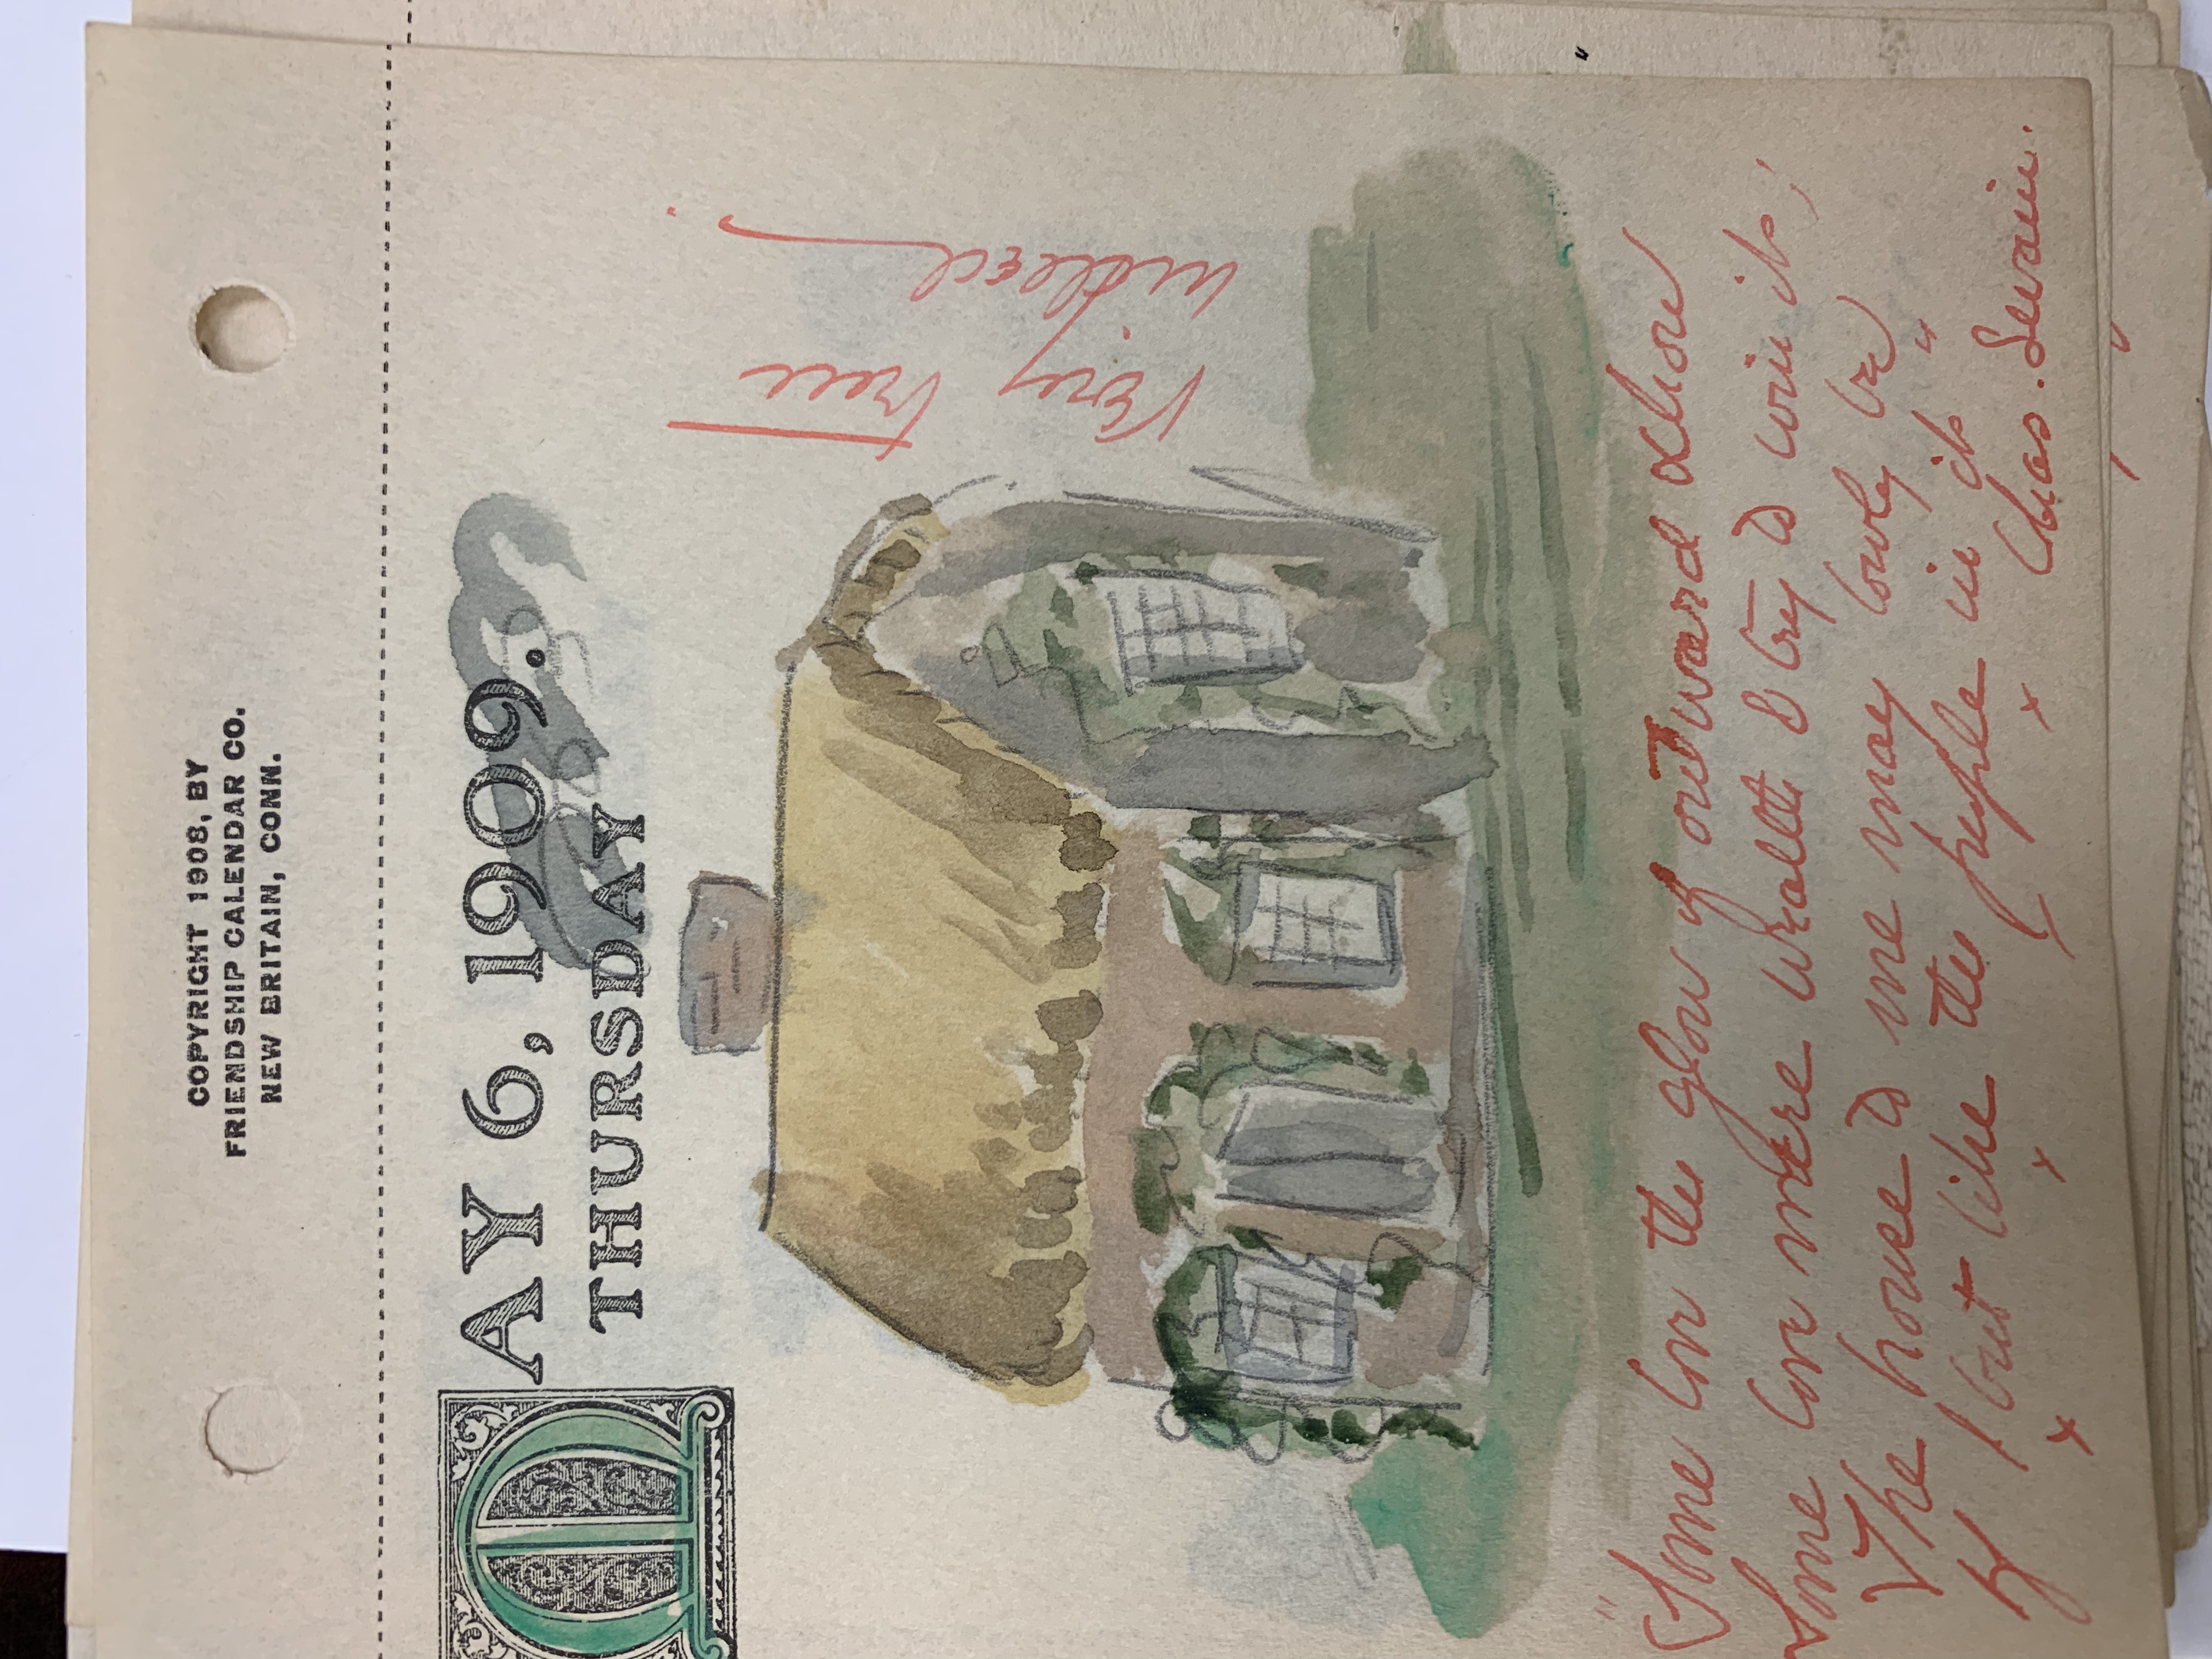 COPYRIGHT 1908, BY
FRIENDSHIP CALENDAR CO.
NEW BRITAIN, CONN.
MAY 6, 1909.
THURSDAY
Very true
indeed.
"Some love the glow of outward show
Some love mere wealth & try to win it;
The house to me may lowly be
If I but like the people in it"
Chas. Swain.
x x x x